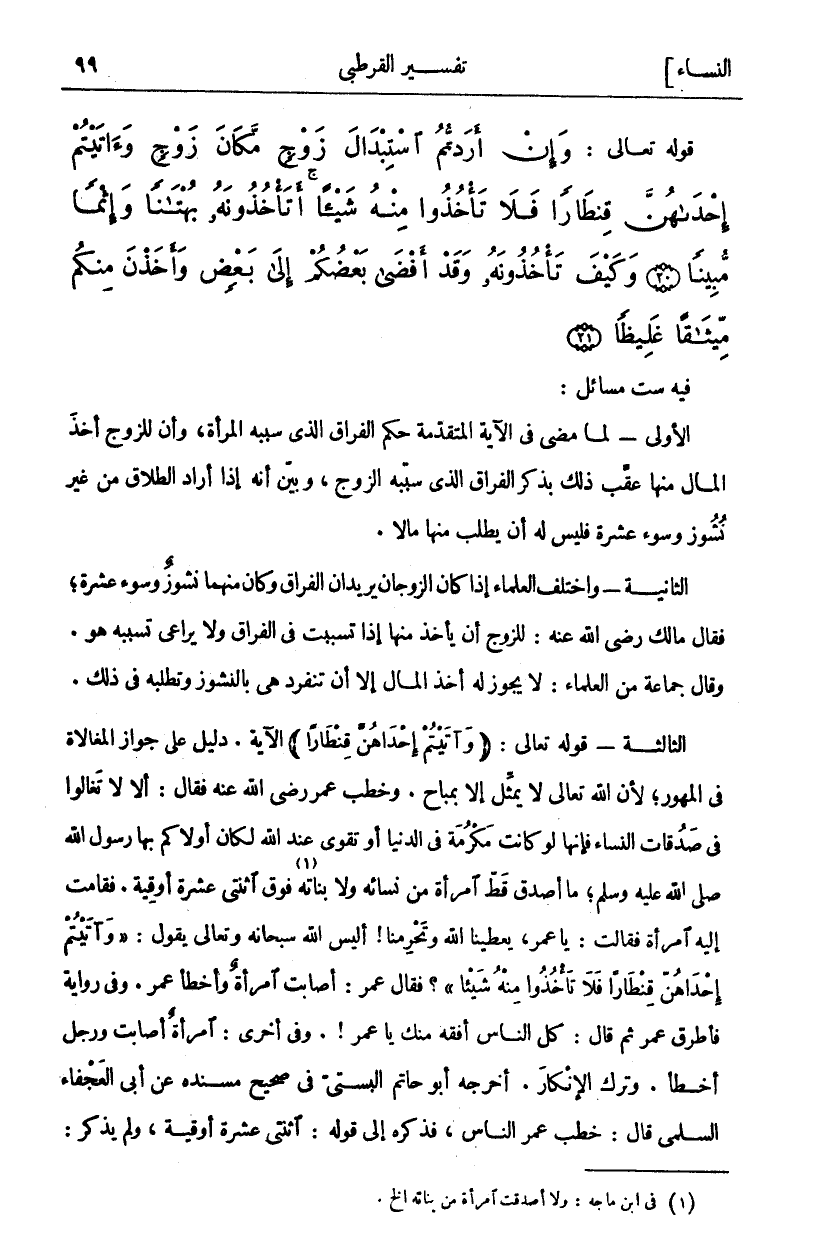 النساء] تفسير القرطبى ٩٩
قوله تعالى : وَإِنْ أَرَدتُّمُ ٱسْتِبْدَالَ زَوْجٍ مَّكَانَ زَوْجٍ وَءَاتَيْتُمْ
إِحْدَىٰهُنَّ قِنطَارًا فَلَا تَأْخُذُوا مِنْهُ شَيْـًٔا ۚ أَتَأْخُذُونَهُۥ بُهْتَـٰنًا وَإِثْمًا
مُّبِينًا ﴿٢٠﴾ وَكَيْفَ تَأْخُذُونَهُۥ وَقَدْ أَفْضَىٰ بَعْضُكُمْ إِلَىٰ بَعْضٍ وَأَخَذْنَ مِنكُم
مِّيثَـٰقًا غَلِيظًا ﴿٢١﴾
فيه ست مسائل :
الأولى – لما مضى فى الآية المتقدّمة حكم الفراق الذى سببه المرأة، وأن للزوج أخذَ
المال منها عقَّب ذلك بذكر الفراق الذى سبّبه الزوج ، وبيّن أنه إذا أراد الطلاق من غير
نُشُوز وسوء عشرة فليس له أن يطلب منها مالا .
الثانية – واختلف العلماء إذا كان الزوجان يريدان الفراق وكان منهما نشوزٌ وسوء عشرة؛
فقال مالك رضى الله عنه : للزوج أن يأخذ منها إذا تسببت فى الفراق ولا يراعى تسببه هو .
وقال جماعة من العلماء : لا يجوز له أخذ المال إلا أن تنفرد هى بالنشوز وتطلبه فى ذلك .
الثالثة – قوله تعالى : ﴿ وَآتَيْتُمْ إِحْدَاهُنَّ قِنْطَارًا ﴾ الآية . دليل على جواز المغالاة
فى المهور؛ لأن الله تعالى لا يمثِّل إلا بمباح . وخطب عمر رضى الله عنه فقال : ألا لا تُغالوا
فى صَدُقات النساء فإنها لو كانت مَكْرُمَة فى الدنيا أو تقوى عند الله لكان أولاكم بها رسول الله
صلى الله عليه وسلم؛ ما أصدق قَطّ آمرأة من نسائه ولا بناته (١) فوق آثنتى عشرة أوقية . فقامت
إليه آمرأة فقالت : يا عمر، يعطينا الله وتَحْرِمنا! أليس الله سبحانه وتعالى يقول : « وَآتَيْتُمْ
إِحْدَاهُنّ قِنْطَارًا فَلَا تَأْخُذُوا مِنْهُ شَيْئًا » ؟ فقال عمر : أصابت آمرأةٌ وأخطأ عمر . وفى رواية
فأطرق عمر ثم قال : كل الناس أفقه منك يا عمر ! . وفى أخرى : آمرأةٌ أصابت ورجل
أخطأ . وترك الإنكارَ . أخرجه أبو حاتم البستىّ فى صحيح مسنده عن أبى العَجْفاء
السلمى قال : خطب عمر الناس ، فذكره إلى قوله : آثنتى عشرة أوقية ، ولم يذكر :
(١) فى ابن ماجه : ولا أصدقت آمرأة من بناته الخ .